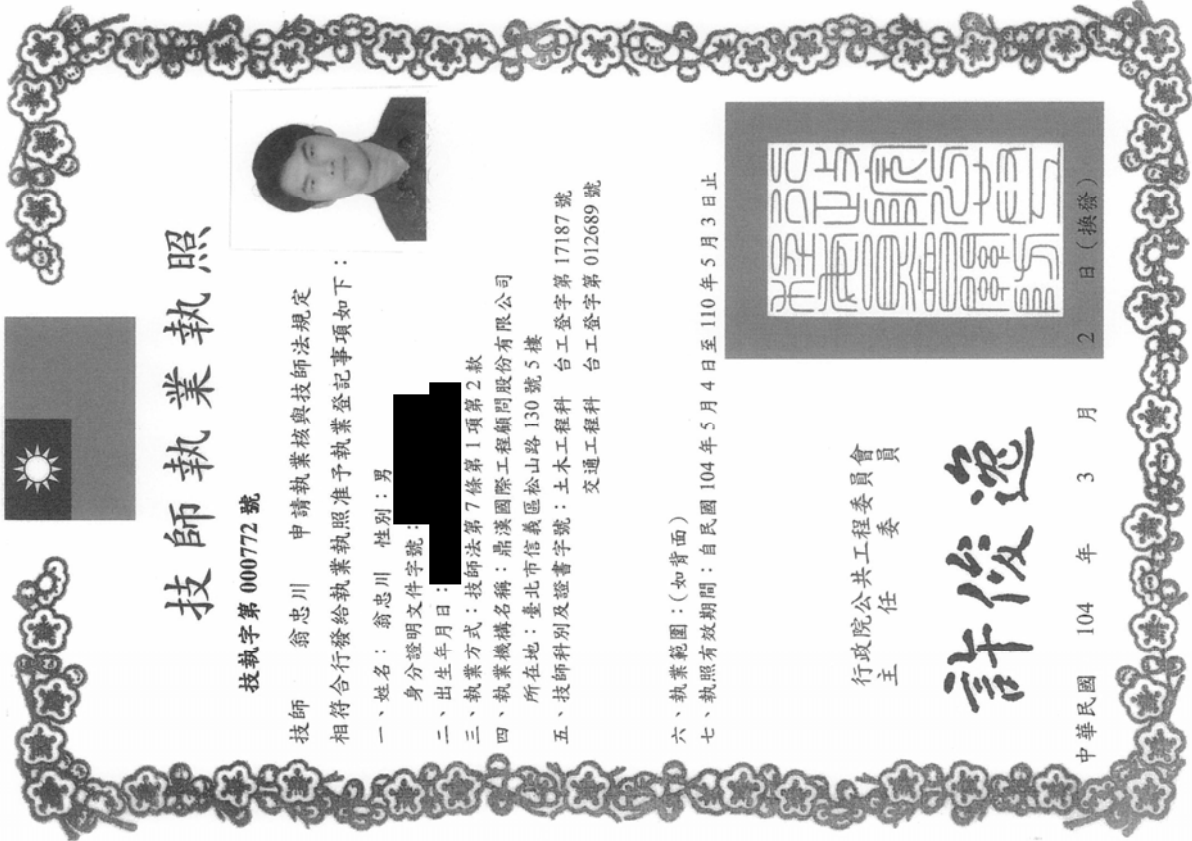 技師執業執照
技執字第 000772 號
技師 翁忠川 申請執業核與技師法規定
相符合行發給執業執照准予執業登記事項如下：
一、姓名： 翁忠川 性別：男
身分證明文件字號：
二、出生年月日：
三、執業方式：技師法第 7 條第 1 項第 2 款
四、執業機構名稱：鼎漢國際工程顧問股份有限公司
所在地：臺北市信義區松山路 130 號 5 樓
五、技師科別及證書字號：土木工程科 台工登字第 17187 號
交通工程科 台工登字第 012689 號
六、執業範圍：(如背面)
七、執照有效期間：自民國 104 年 5 月 4 日至 110 年 5 月 3 日止
行政院公共工程委員會
主任委員
許俊逸
中華民國 104 年 3 月 2 日（換發）